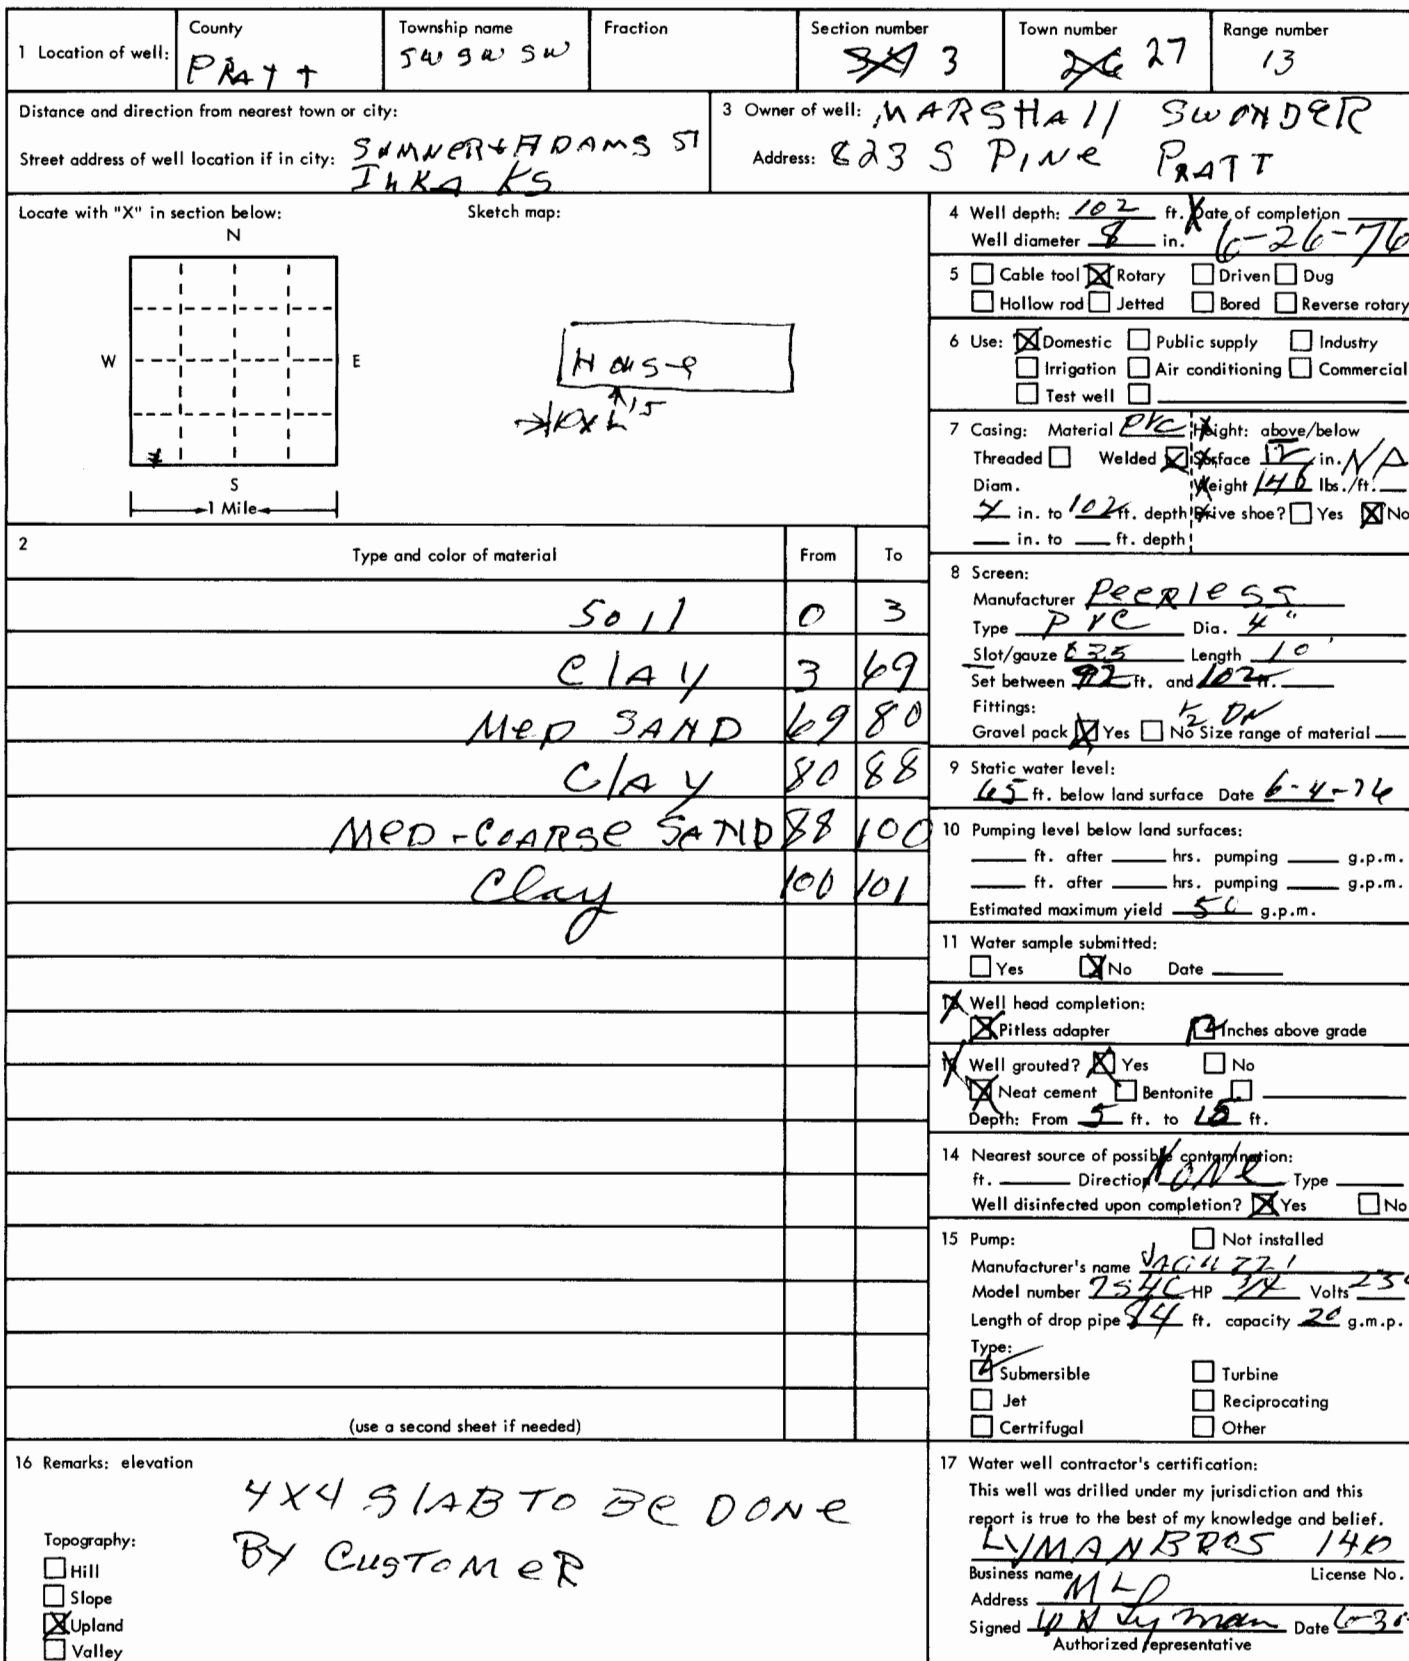 1 Location of well:
County
PRATT
Township name
SW SW SW
Fraction
Section number
3
Town number
27
Range number
13
Distance and direction from nearest town or city:
Street address of well location if in city: SUMNER & ADAMS ST
IUKA KS
3 Owner of well: MARSHALL SWONDER
Address: 823 S PINE PRATT
Locate with "X" in section below:
Sketch map:
N
W
E
S
1 Mile
HOUSE
15
4 Well depth: 102 ft. Date of completion
Well diameter 8 in. 6-26-76
5 Cable tool Rotary Driven Dug
Hollow rod Jetted Bored Reverse rotary
6 Use: Domestic Public supply Industry
Irrigation Air conditioning Commercial
Test well
7 Casing: Material PVC Height: above/below
Threaded Welded Surface 12 in. NA
Diam. Weight lbs./ft.
4 in. to 102 ft. depth Drive shoe? Yes No
in. to ft. depth
2
Type and color of material From To
Soil 0 3
CLAY 3 69
MED SAND 69 80
CLAY 80 88
MED-COARSE SAND 88 100
Clay 100 101
(use a second sheet if needed)
8 Screen:
Manufacturer PEERLESS
Type PVC Dia. 4"
Slot/gauze Length 10'
Set between 92 ft. and 102 ft.
Fittings:
1/2 DN
Gravel pack Yes No Size range of material
9 Static water level:
65 ft. below land surface Date 6-4-76
10 Pumping level below land surfaces:
ft. after hrs. pumping g.p.m.
ft. after hrs. pumping g.p.m.
Estimated maximum yield 50 g.p.m.
11 Water sample submitted:
Yes No Date
12 Well head completion:
Pitless adapter 12 Inches above grade
13 Well grouted? Yes No
Neat cement Bentonite
Depth: From 5 ft. to 15 ft.
14 Nearest source of possible contamination:
ft. Direction NONE Type
Well disinfected upon completion? Yes No
15 Pump: Not installed
Manufacturer's name JACUZZI
Model number HP 3/4 Volts 230
Length of drop pipe 84 ft. capacity 20 g.m.p.
Type:
Submersible Turbine
Jet Reciprocating
Certrifugal Other
16 Remarks: elevation
4X4 SLAB TO BE DONE
BY CUSTOMER
Topography:
Hill
Slope
Upland
Valley
17 Water well contractor's certification:
This well was drilled under my jurisdiction and this
report is true to the best of my knowledge and belief.
LYMAN BROS 140
Business name License No.
Address
Signed Lyman Date 6-30
Authorized representative